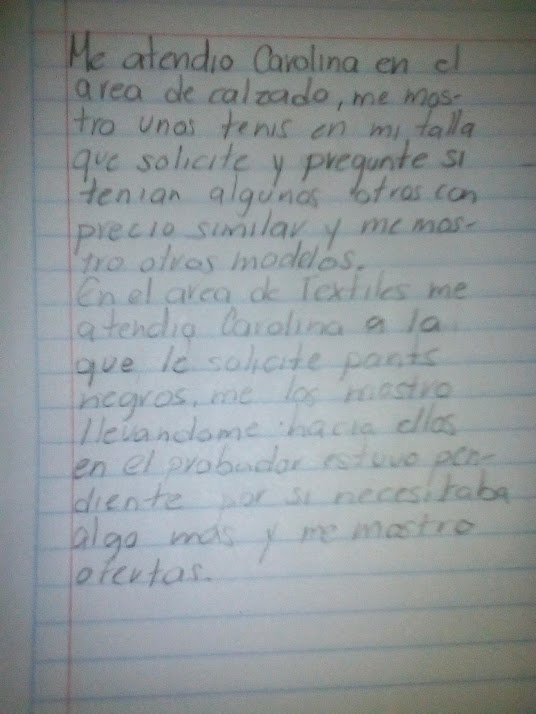 Me atendio Carolina en el
area de calzado, me mos-
tro unos tenis en mi talla
que solicite y pregunte si
tenian algunos otros con
precio similar y me mos-
tro otros modelos.
En el area de Textiles me
atendio Carolina a la
que le solicite pants
negros, me los mostro
llevandome hacia ellos
en el probador estuvo pen-
diente por si necesitaba
algo más y me mostro
ofertas.